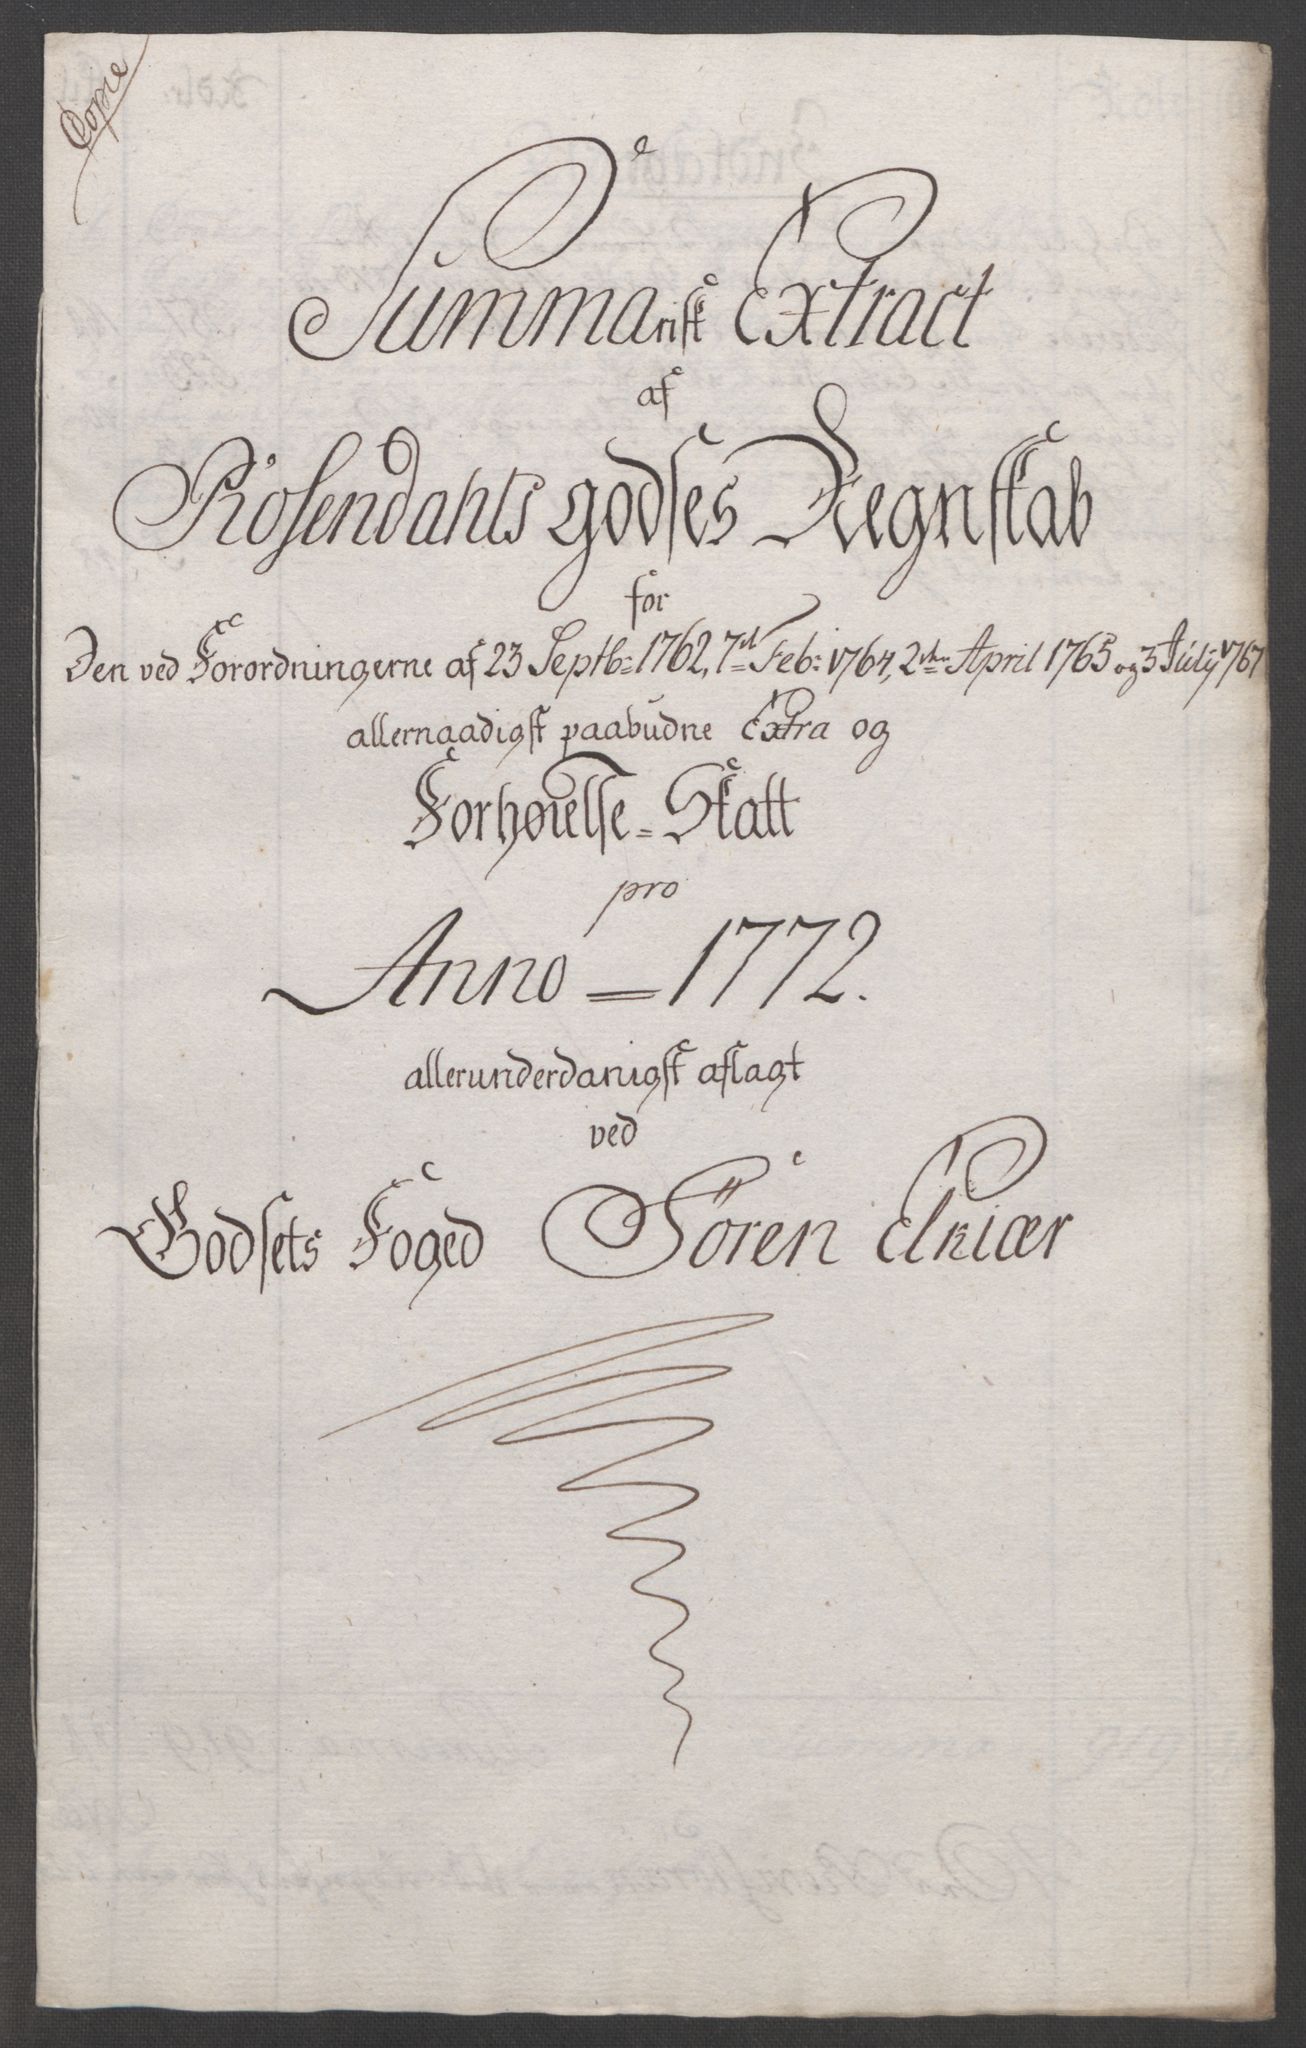 Copie
Summarisk Extract
af
Rosendahls godses Regnskab
for
Den ved Forordningerne af 23 Septb: 1762, 7d Feb: 1764, 2den April 1765 og 3 Julij 1767
allernaadigst paabudne Extra og
Forhøielse=Skatt
pro
Anno = 1772.
allerunderdanigst aflagt
ved
Godsets Foged Sören Elkiær